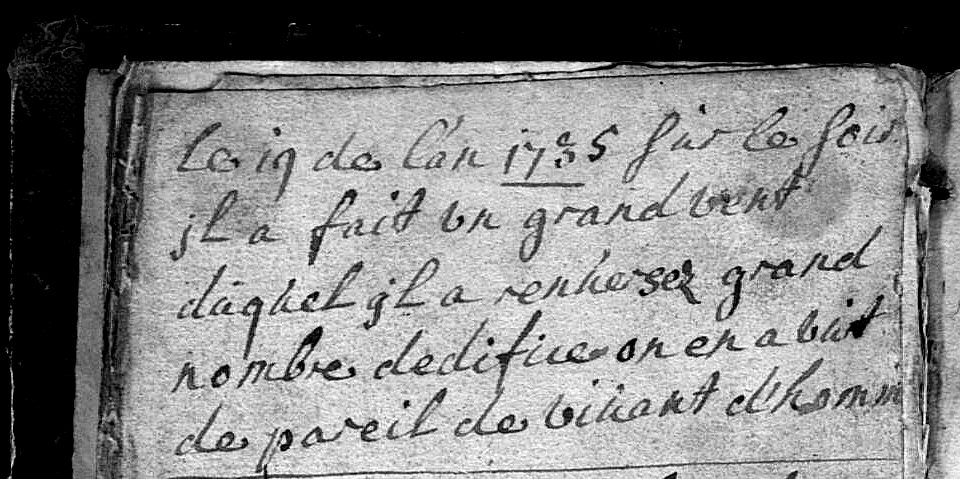 le 19 de l'an 1735 sur le soir
jl a fait vn grand vent
duquel jl a renuersez grand
nombre dedifice on en a vut
de pareil de viuant d'homm